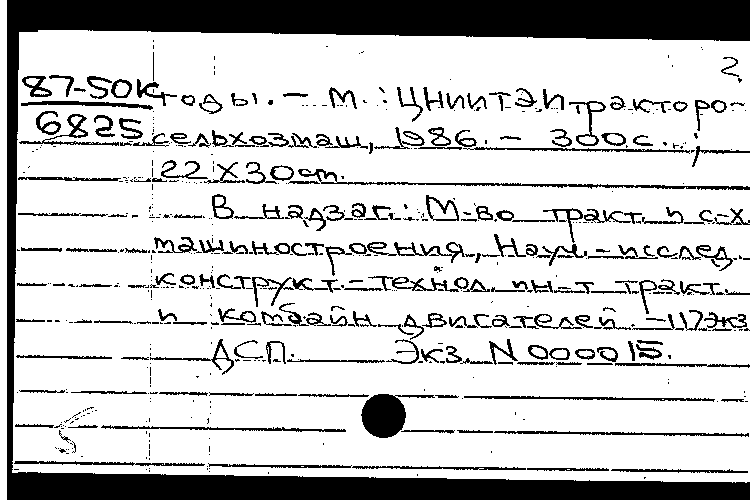 2
87-50к
6825
годы. - М. : ЦНИИТЭИтракторо-
сельхозмаш, 1986. - 300 с. ;
22 X 30 см.
В надзаг.: М-во тракт. и с-х
машиностроения, Науч.-исслед.
конструкт.-технол. ин-т тракт.
и комбайн. двигателей. - 117 экз
ДСП. Экз. N 000015.